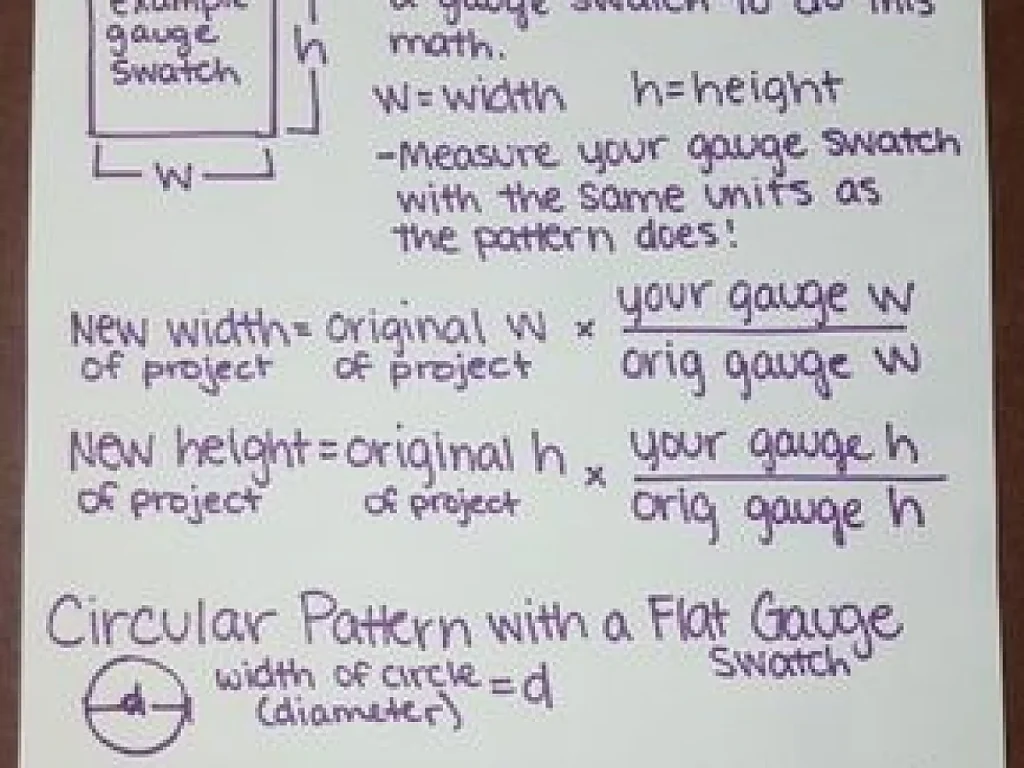 example
gauge
swatch
h
w
a gauge swatch to do this
math.
w=width h=height
-Measure your gauge swatch
with the same units as
the pattern does!
New width = original w × your gauge w
of project of project orig gauge w
New height = original h × your gauge h
of project of project orig gauge h
Circular Pattern with a Flat Gauge
Swatch
d
width of circle = d
(diameter)